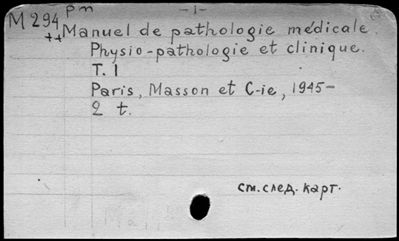 pm -1-
M 294 Manuel de pathologie médicale.
++
Physio-pathologie et clinique.
T. 1
Paris, Masson et C-ie, 1945-
2 t.
см. след. карт.